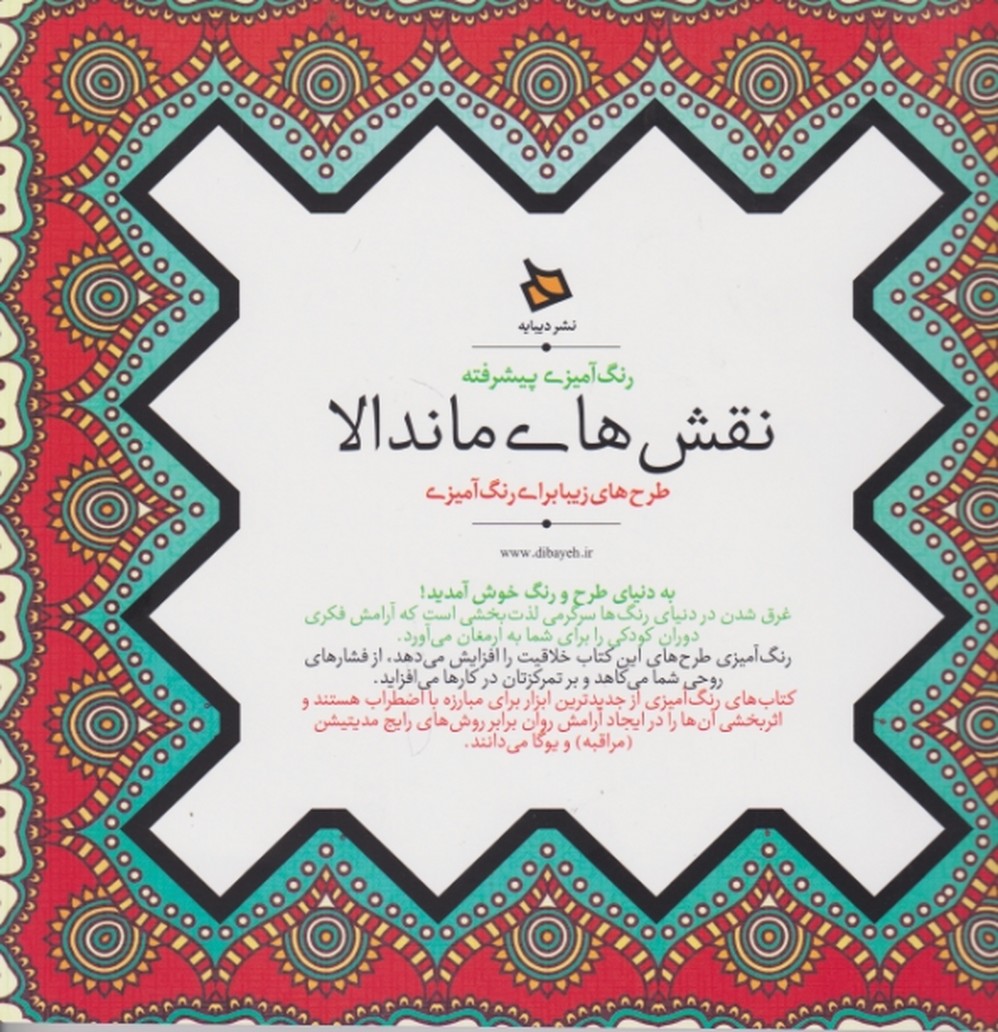 نشر دیبایه
رنگ‌آمیزی پیشرفته
نقش‌های ماندالا
طرح‌های زیبا برای رنگ‌آمیزی
www.dibayeh.ir
به دنیای طرح و رنگ خوش آمدید!
غرق شدن در دنیای رنگ‌ها سرگرمی لذت‌بخشی است که آرامش فکری
دوران کودکی را برای شما به ارمغان می‌آورد.
رنگ‌آمیزی طرح‌های این کتاب خلاقیت را افزایش می‌دهد، از فشارهای
روحی شما می‌کاهد و بر تمرکزتان در کارها می‌افزاید.
کتاب‌های رنگ‌آمیزی از جدیدترین ابزار برای مبارزه با اضطراب هستند و
اثربخشی آن‌ها را در ایجاد آرامش روان برابر روش‌های رایج مدیتیشن
(مراقبه) و یوگا می‌دانند.